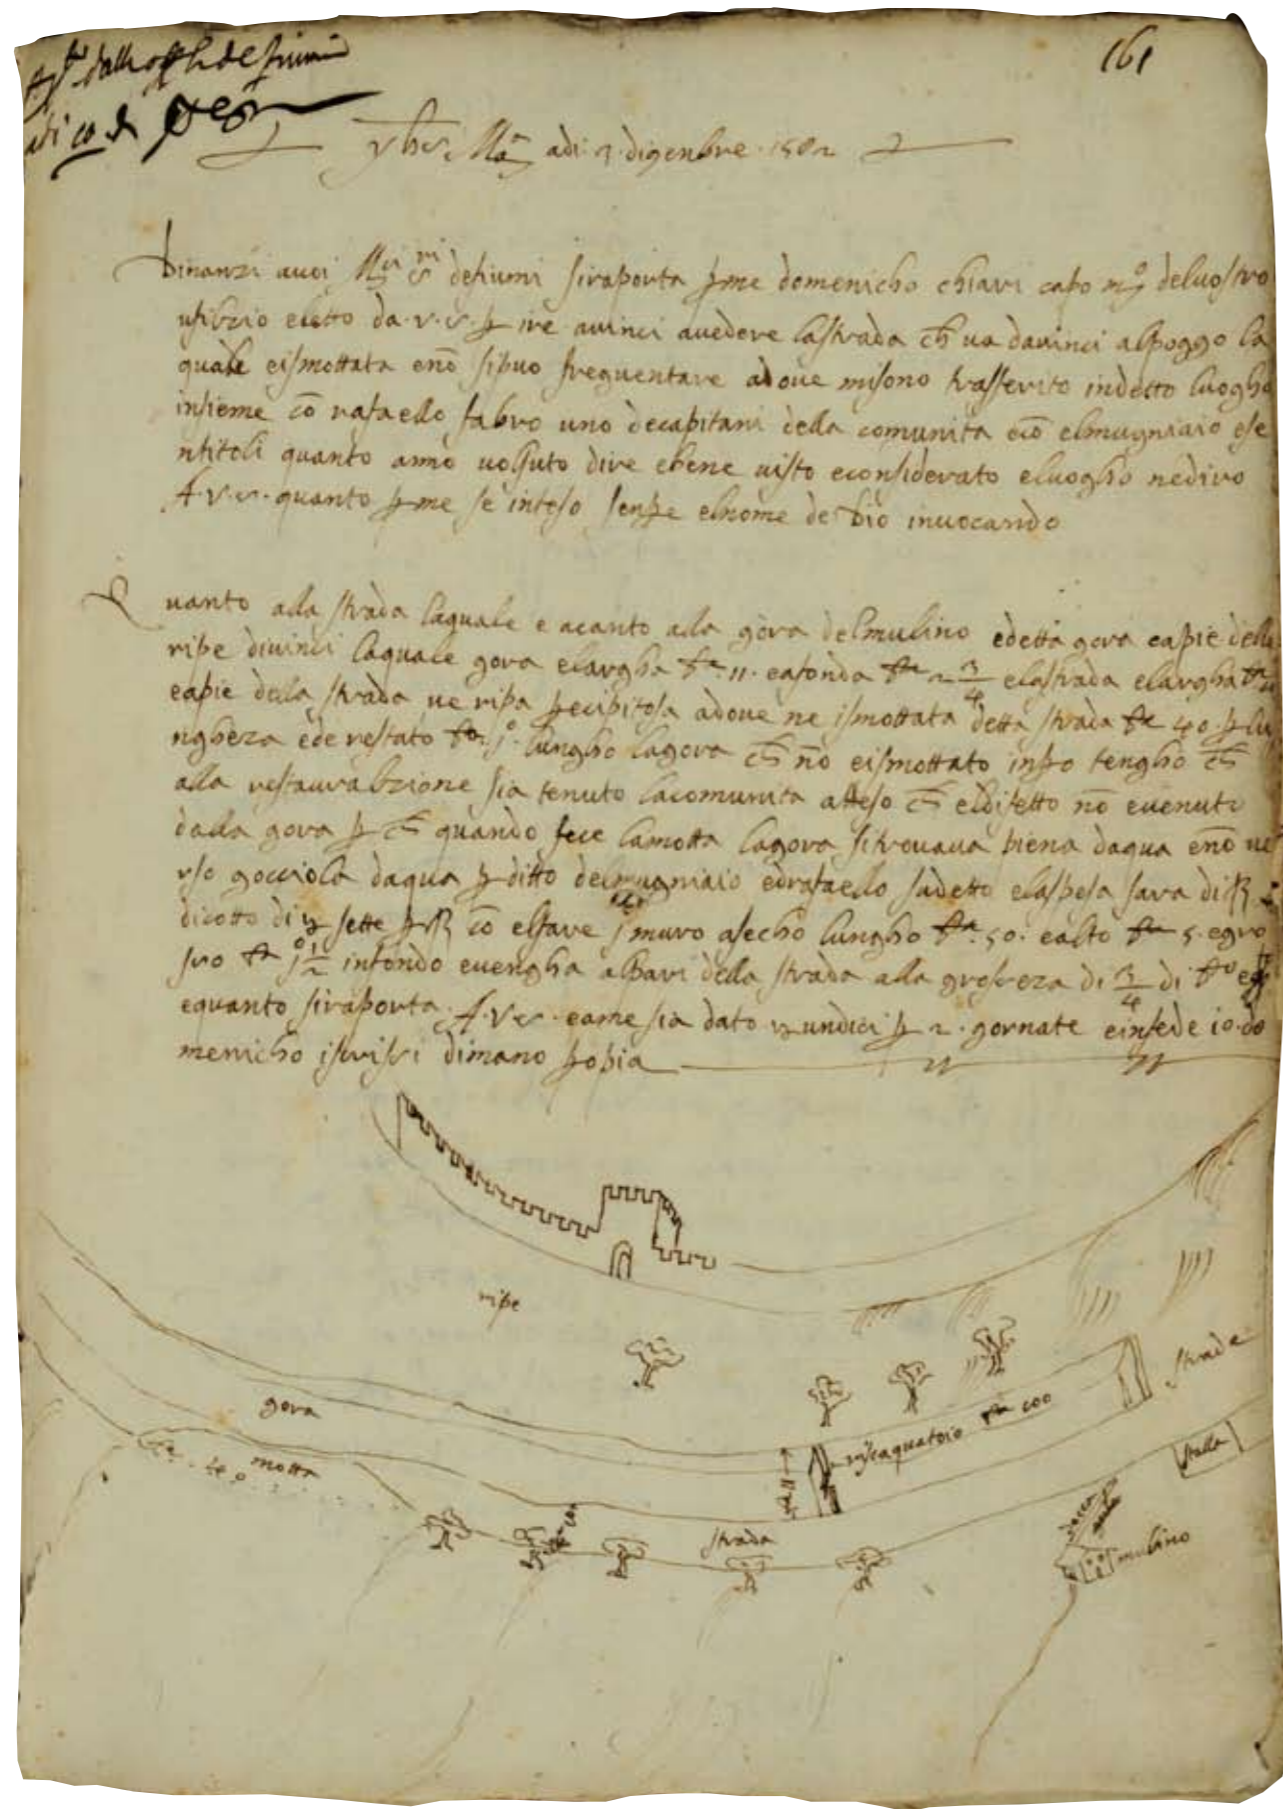 161
adi
yhs Mª adi 3 digenbre 1582
Dinanzi auoi defiumi siraporta p me domenicho chiari capo mº deluostro
ufibzio eletto da v.s. p ire auinci auedere lastrada ch ua dauinci alpoggo la
quale eismottata enō sipuo frequentare adoue misono trasferito indetto luogho
insieme cō rafaello fabro uno decapitani della comunita ecō elmugniaio ese
ntitoli quanto anno uolsuto dire ebene uisto econsiderato eluogho nediro
A.V.S. quanto p me se inteso senpe elnome de dio inuocando
Quanto alla strada laquale e acanto alla gora delmulino edetta gora eapie delle
ripe diuinci laquale gora elargha bª 11 eafonda bª 2 3/4 elastrada elargha bª
eapie della strada ue ripa pecipitosa adoue ne ismottata detta strada bª 40 p lu
ngheza ede restato bª jº lungho lagora ch nō eismottato inpo tengho ch
alla restaurabzione sia tenuto lacomunita atteso ch eldifetto nō euenuto
dalla gora p ch quando fece lamotta lagora sitrouaua piena daqua enō ue
rso gocciola daqua p ditto delmugniaio edrafaello sudetto elaspesa sara di
dicotto di sette p cō elfare j muro asecho lungho bª 50 ealto bª 5 egro
sso bª jº 1/2 infondo euengha alpari della strada alla grosseza di 3/4 di bº
equanto siraporta A.V.S. eame sia dato undici p 2 gornate einfede io do
menicho iscrissi dimano popia
ripe
strada
gora
riscaquatoio bª 100
motta
bª 40
bª 11
stalla
strada
mulino